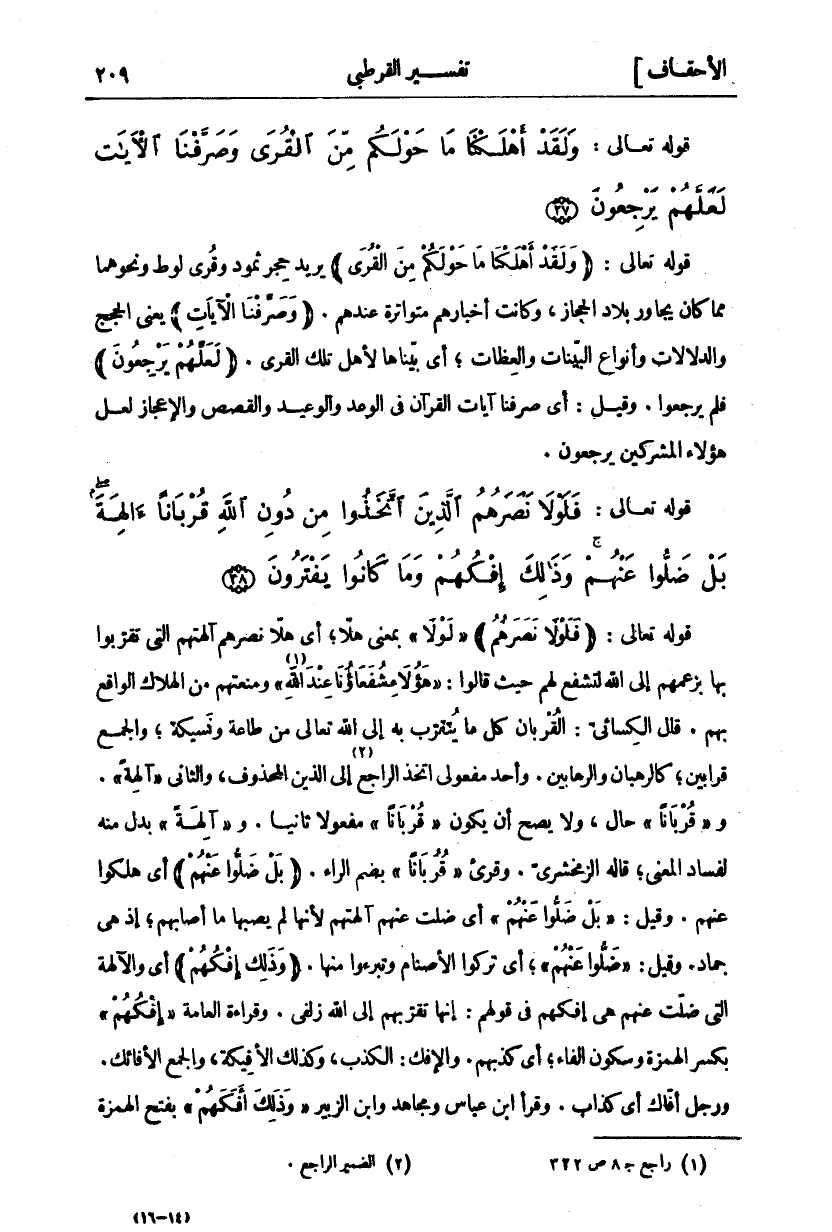 الأحقاف ] تفسير القرطبى ٢٠٩
قوله تعالى : وَلَقَدْ أَهْلَكْنَا مَا حَوْلَكُم مِّنَ ٱلْقُرَى وَصَرَّفْنَا ٱلْآيَٰتِ
لَعَلَّهُمْ يَرْجِعُونَ ٢٧
قوله تعالى : ﴿ وَلَقَدْ أَهْلَكْنَا مَا حَوْلَكُمْ مِنَ الْقُرَى ﴾ يريد حِجر ثمود وقُرى لوط ونحوهما
مما كان يجاور بلاد الحجاز ، وكانت أخبارهم متواترة عندهم . ﴿ وَصَرَّفْنَا الْآيَاتِ ﴾ يعنى الحجج
والدلالات وأنواع البيّنات والعِظات ؛ أى بيّناها لأهل تلك القرى . ﴿ لَعَلَّهُمْ يَرْجِعُونَ ﴾
فلم يرجعوا . وقيل : أى صرفنا آيات القرآن فى الوعد والوعيد والقصص والإعجاز لعل
هؤلاء المشركين يرجعون .
قوله تعالى : فَلَوْلَا نَصَرَهُمُ ٱلَّذِينَ ٱتَّخَذُوا مِن دُونِ ٱللَّهِ قُرْبَانًا ءَالِهَةًۖ
بَلْ ضَلُّوا عَنْهُمْۚ وَذَٰلِكَ إِفْكُهُمْ وَمَا كَانُوا يَفْتَرُونَ ٢٨
قوله تعالى : ﴿ فَلَوْلَا نَصَرَهُمُ ﴾ « لَوْلَا » بمعنى هلّا ؛ أى هلّا نصرهم آلهتهم التى تقرّبوا
بها بزعمهم إلى الله لتشفع لهم حيث قالوا : « هَؤُلَاءِ شُفَعَاؤُنَا عِنْدَ اللهِ » (١) ومنعتهم من الهلاك الواقع
بهم . قال الكسائىّ : القُربان كل ما يُتقرّب به إلى الله تعالى من طاعة ونَسيكة ؛ والجمع
قرابين ؛ كالرهبان والرهابين . وأحد مفعولى اتخذ الراجع (٢) إلى الذين المحذوف ، والثانى « آلِهَةً » .
و « قُرْبَانًا » حال ، ولا يصح أن يكون « قُرْبَانًا » مفعولا ثانيا . و « آلِهَةً » بدل منه
لفساد المعنى ؛ قاله الزمخشرىّ . وقرئ « قُرُبَانًا » بضم الراء . ﴿ بَلْ ضَلُّوا عَنْهُمْ ﴾ أى هلكوا
عنهم . وقيل : « بَلْ ضَلُّوا عَنْهُمْ » أى ضلت عنهم آلهتهم لأنها لم يصبها ما أصابهم ؛ إذ هى
جماد . وقيل : « ضَلُّوا عَنْهُمْ » ؛ أى تركوا الأصنام وتبرءوا منها . ﴿ وَذَلِكَ إِفْكُهُمْ ﴾ أى والآلهة
التى ضلّت عنهم هى إفكهم فى قولهم : إنها تقرّبهم إلى الله زلفى . وقراءة العامة « إِفْكُهُمْ »
بكسر الهمزة وسكون الفاء ؛ أى كذبهم . والإفك : الكذب ، وكذلك الأفيكة ، والجمع الأفائك .
ورجل أفّاك أى كذاب . وقرأ ابن عباس ومجاهد وابن الزبير « وَذَلِكَ أَفَكَهُمْ » بفتح الهمزة
(١) راجع جـ ٨ ص ٣٢٢ (٢) الضمير الراجع .
(١٤-١٦)